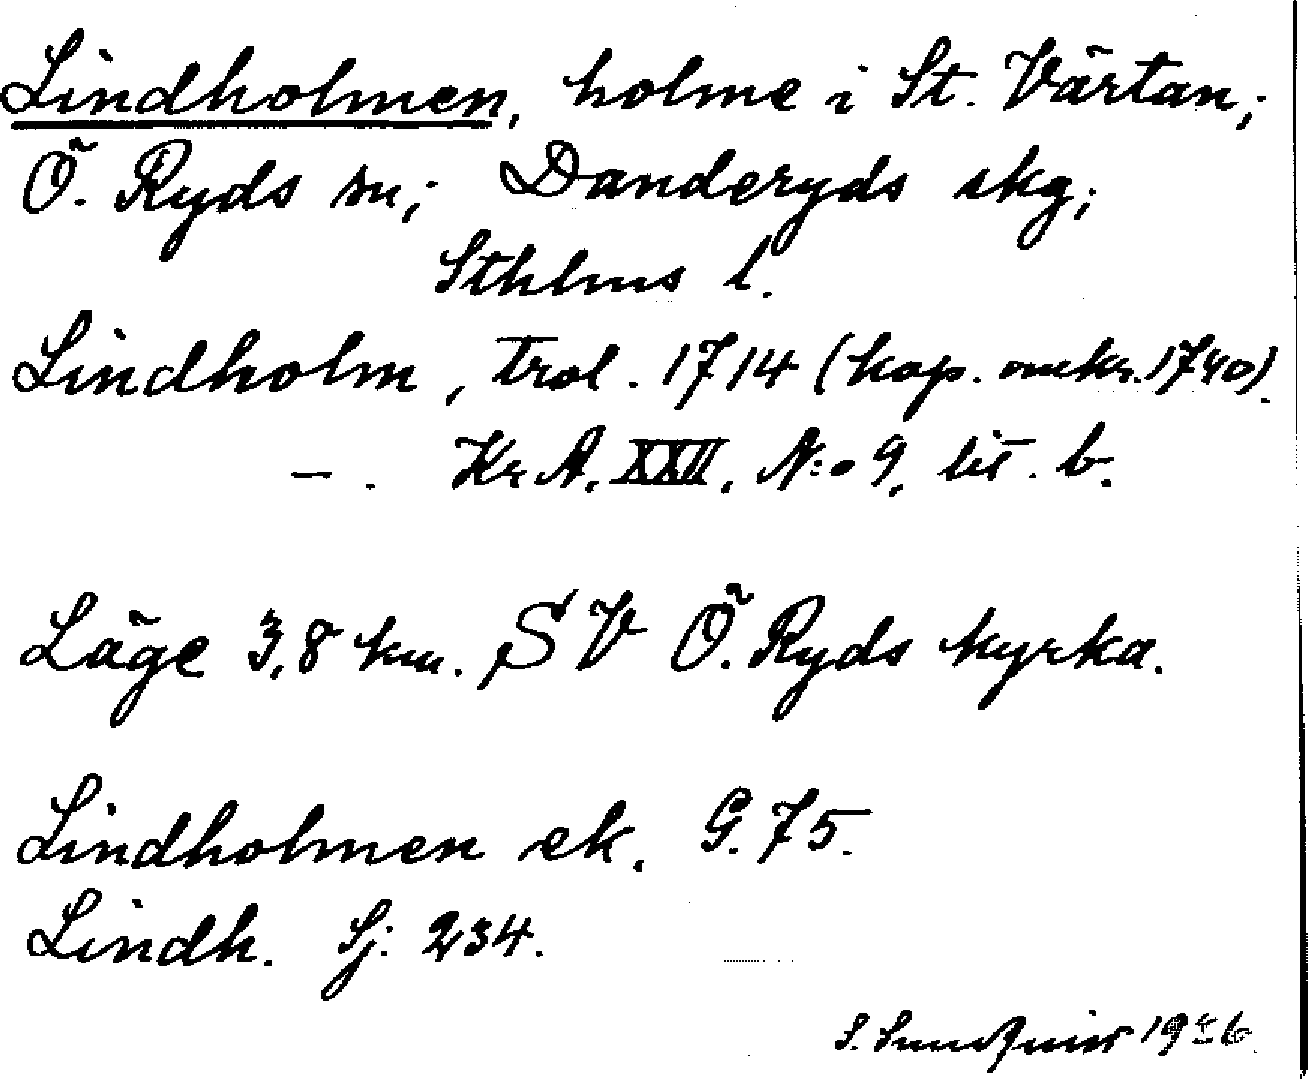 Lindholmen, holme i St. Värtan;
Ö. Ryds sn; Danderyds skg;
Sthlms l.
Lindholm, trol. 1714 (kop. omkr. 1740).
— . Kr A. XXII. N:o 9, lit. b.
Läge 3,8 km. SV Ö. Ryds kyrka.
Lindholmen ek. G. 75.
Lindh. Sj. 234.
S. Sundquist